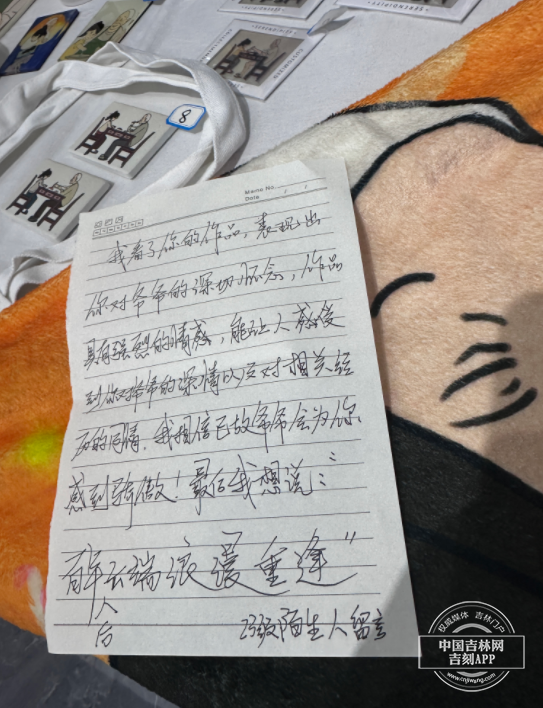 8
Memo No.
Date / /
我看了你的作品，表现出
你对爷爷的深切怀念，作品
具有强烈的情感，能让人感受
到你对爷爷的深情以及对相关经
历的同情，我相信已故爷爷会为你
感到骄傲！最后我想说：
百年
人
后
23级陌生人留言
权威媒体 吉林门户
中国吉林网
吉刻APP
www.cnjiwang.com